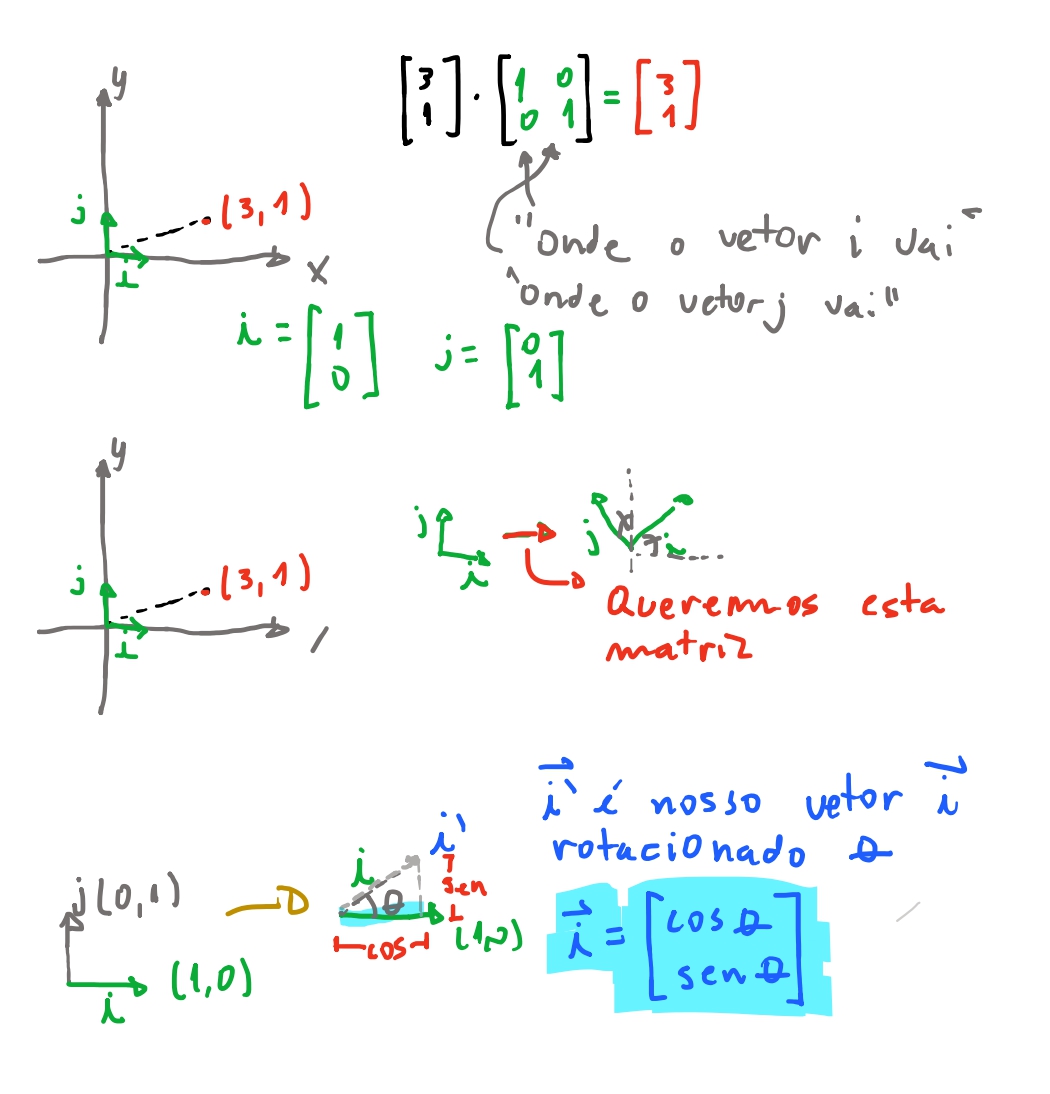 y
[3 1] · [1 0 0 1] = [3 1]
j
(3,1)
i
x
"Onde o vetor i vai"
"onde o vetor j vai"
i = [1 0] j = [0 1]
y
j
(3,1)
i
j
i
j
i
Queremos esta
matriz
i' é nosso vetor i
rotacionado θ
j (0,1)
i
(1,0)
i
i'
θ
sen
cos
i = [cos θ sen θ]